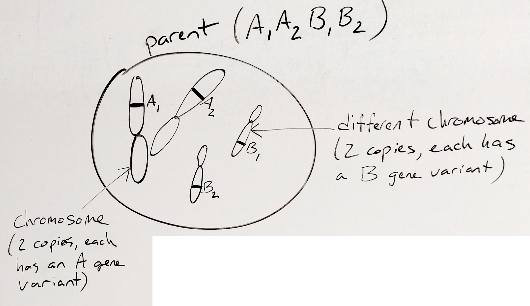 parent (A₁A₂B₁B₂)
A₁
A₂
B₁
B₂
different chromosome
(2 copies, each has
a B gene variant)
Chromosome
(2 copies, each
has an A gene
variant)